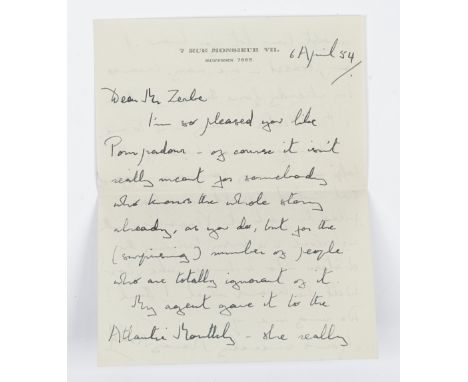 7 RUE MONSIEUR VII.
SUFFREN 7665.
6 April 54
Dear Mr Zerbe
I'm so pleased you like
Pompadour - of course it isn't
really meant for somebody
who knows the whole story
already, as you do, but for the
(surprising) number of people
who are totally ignorant of it.
My agent gave it to the
Atlantic Monthly - she really